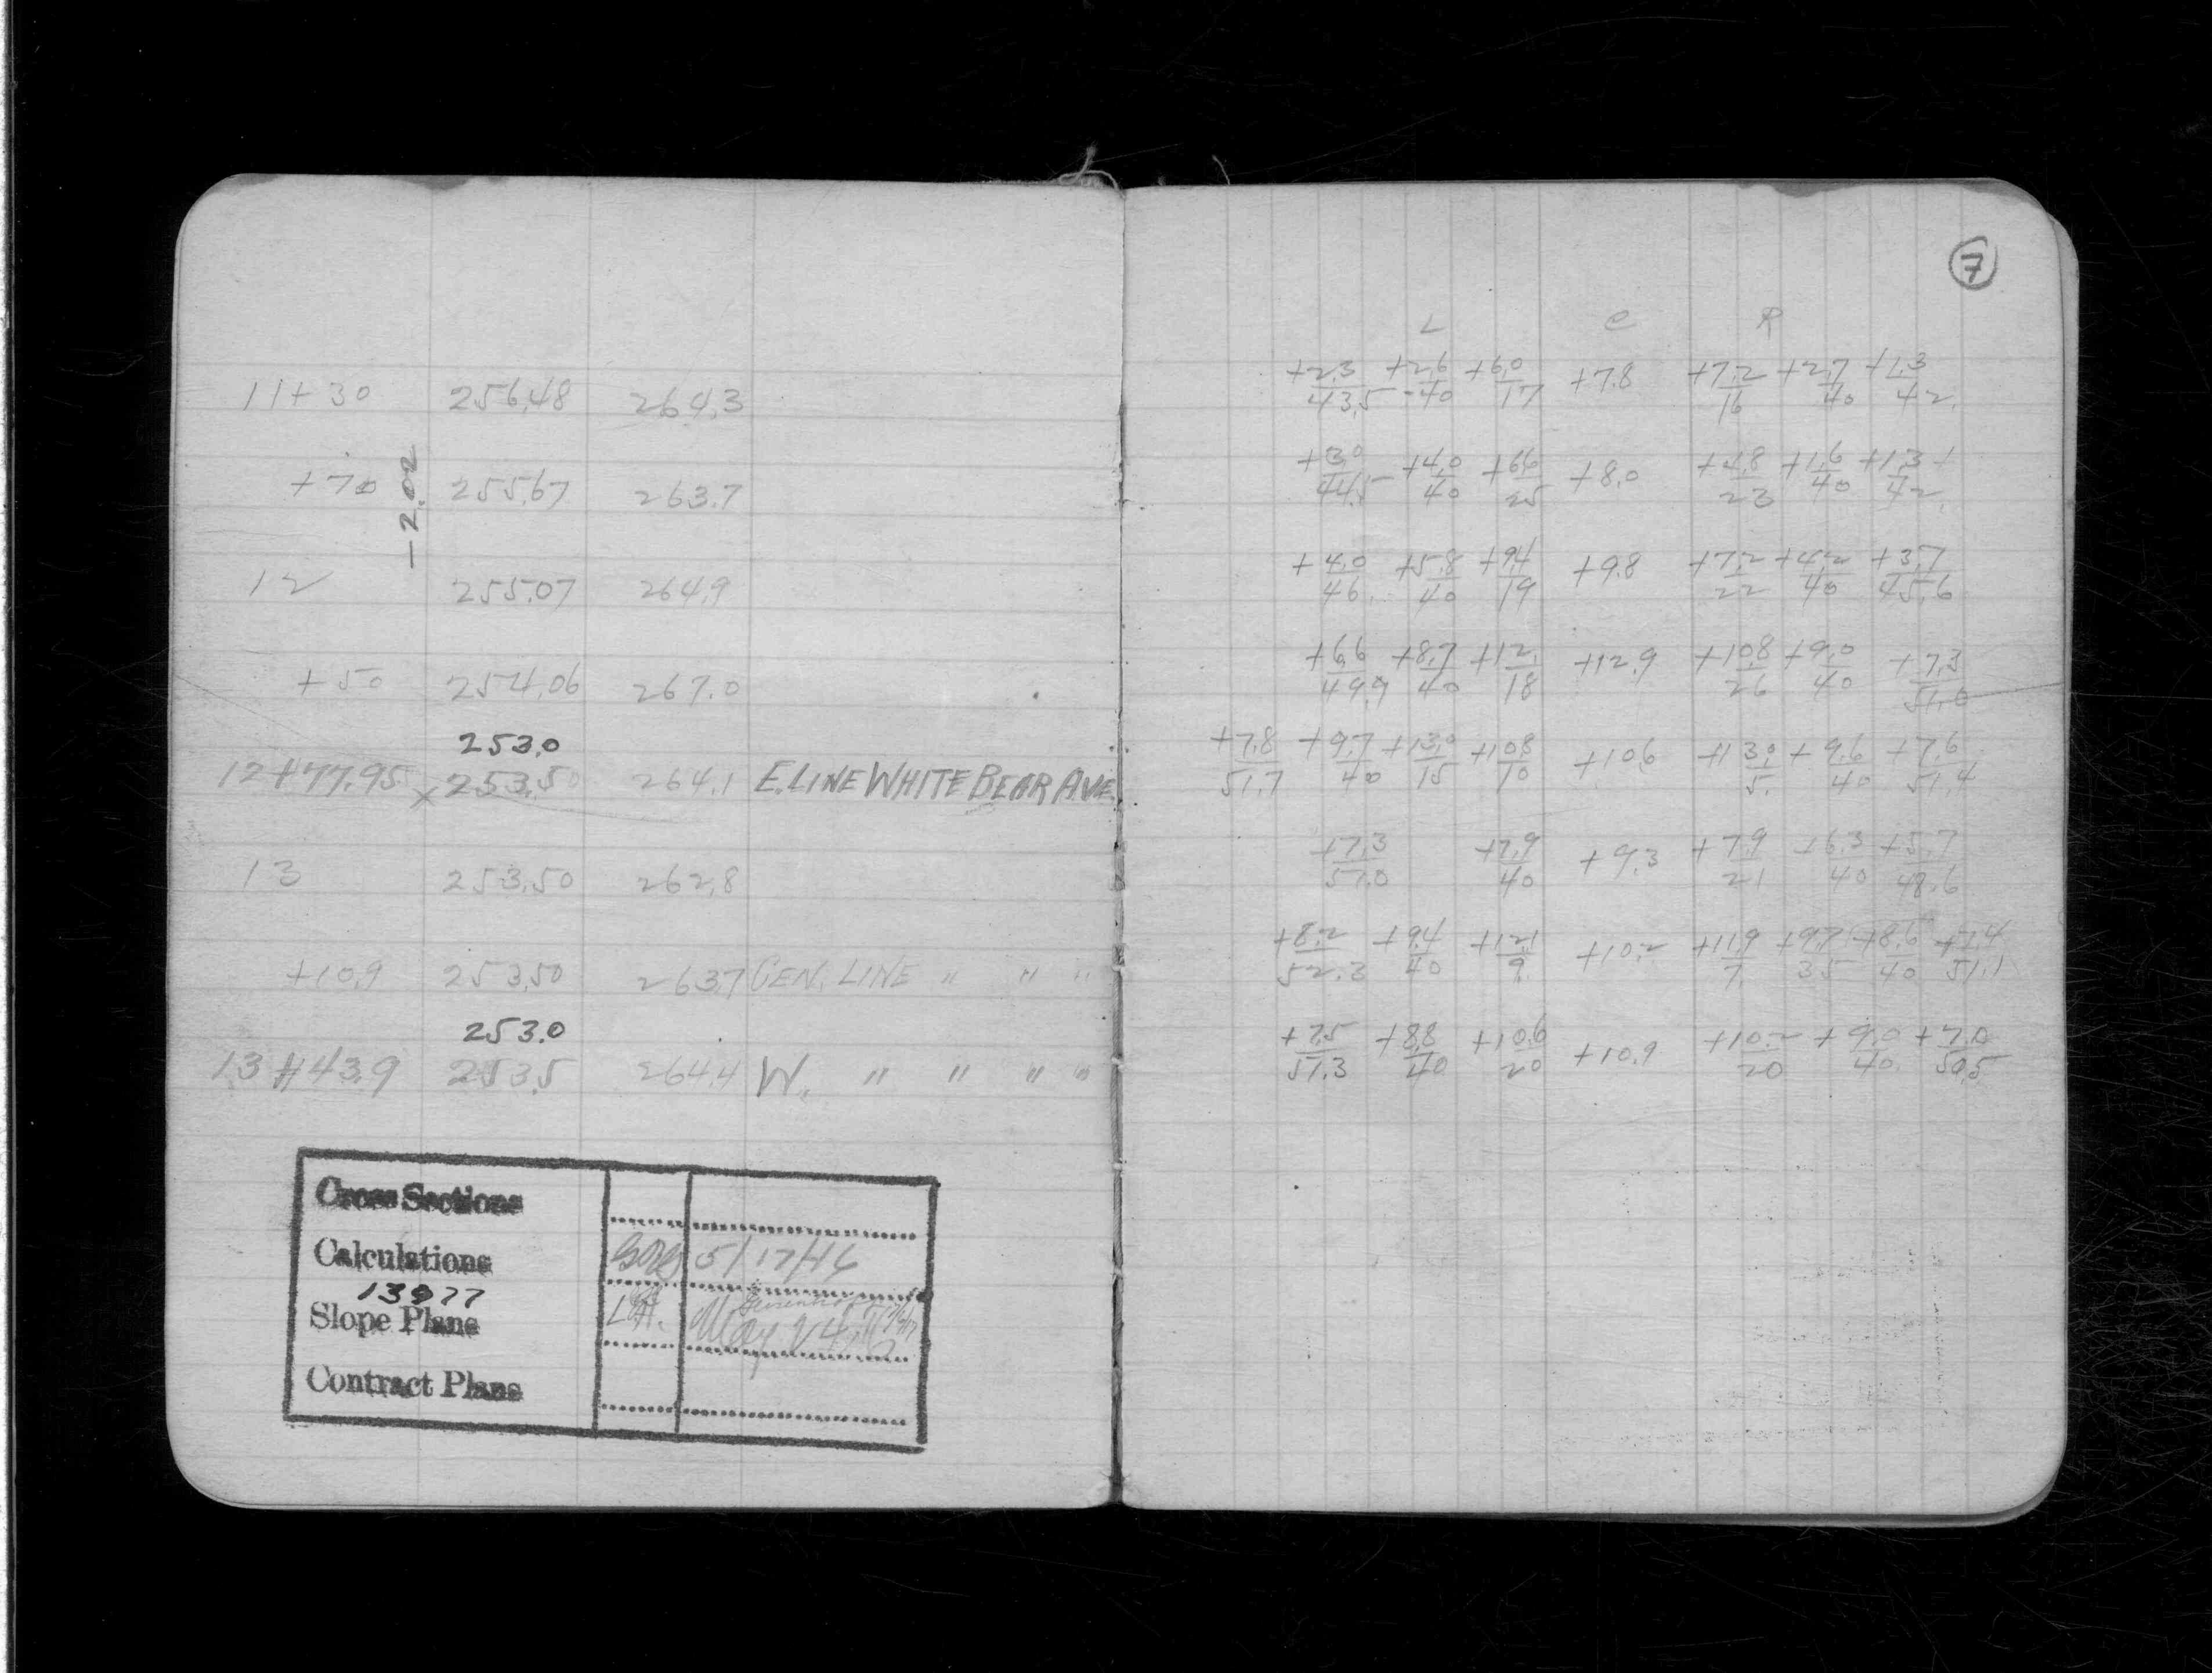 7
L C R
11+30 256.48 264.3 +2.3/43.5 +2.6/40 +6.0/17 +7.8 +7.2/16 +2.7/40 +1.3/42
-2.02
+70 255.67 263.7 +3.0/44.5 +4.0/40 +6.6/25 +8.0 +4.8/23 +1.6/40 +1.3/42
12 255.07 264.9 +4.0/46 +5.8/40 +9.4/19 +9.8 +7.2/22 +4.2/40 +3.7/45.6
+50 254.06 267.0 +6.6/49.9 +8.7/40 +12.1/18 +12.9 +10.8/26 +9.0/40 +7.3/51.0
253.0
12+77.95 x 253.50 264.1 E. LINE WHITE BEAR AVE. +7.8/51.7 +9.7/40 +13.0/15 +10.8/10 +10.6 +13.0/5. +9.6/40 +7.6/51.4
13 253.50 262.8 +7.3/51.0 +7.9/40 +9.3 +7.9/21 +6.3/40 +5.7/48.6
+10.9 253.50 263.7 CEN. LINE " " " +8.2/52.3 +9.4/40 +12.1/9. +10.2 +11.9/7. +9.7/35 +8.6/40 +7.4/51.1
253.0
13+43.9 253.5 264.4 W. " " " " +7.5/51.3 +8.8/40 +10.6/20 +10.9 +10.2/20 +9.0/40 +7.0/50.5
Cross Sections
Calculations 5/17/46
13977
Slope Plans May 24,
Contract Plans